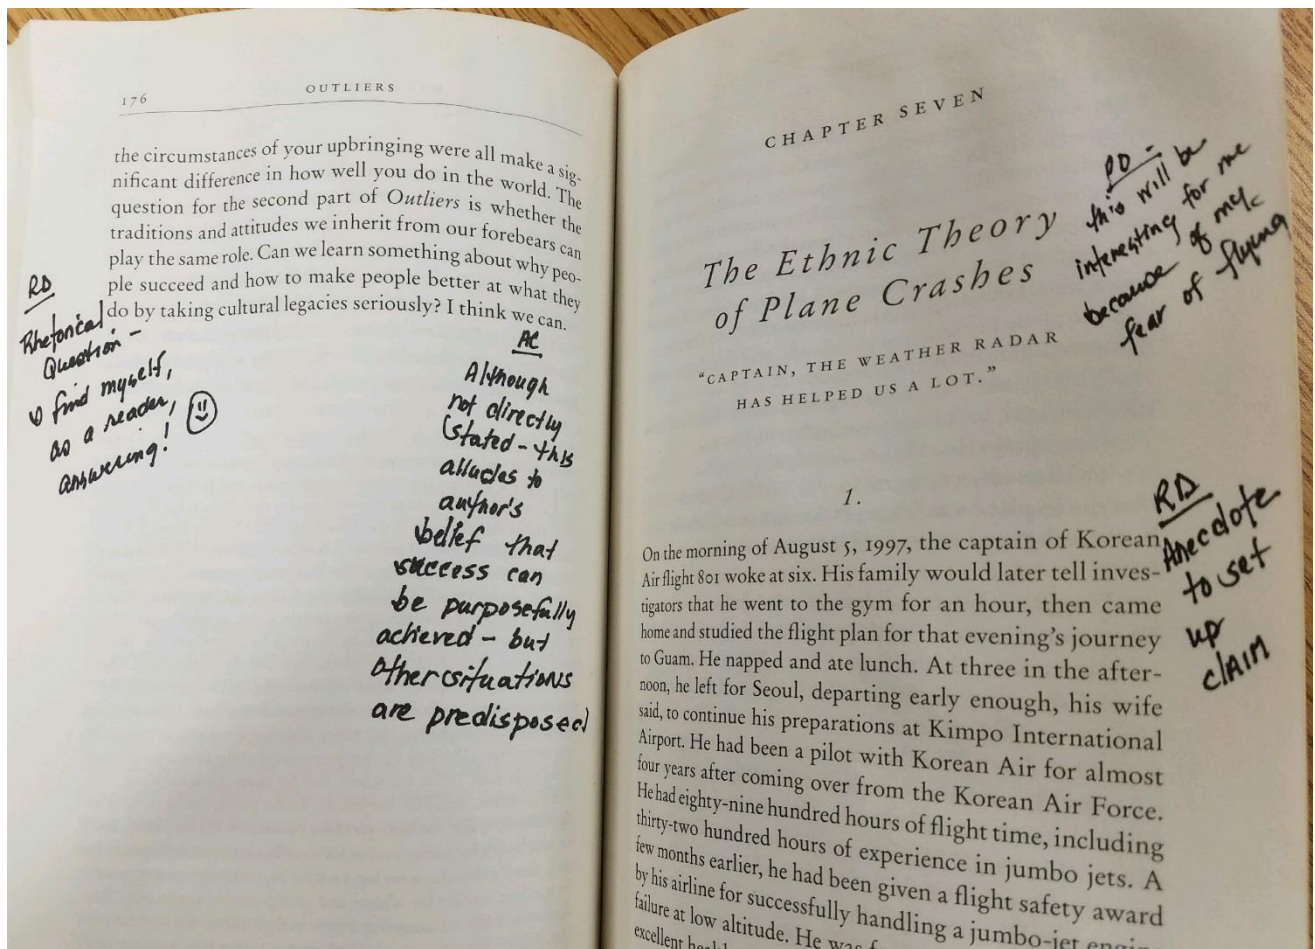 176
OUTLIERS
the circumstances of your upbringing were all make a sig-
nificant difference in how well you do in the world. The
question for the second part of Outliers is whether the
traditions and attitudes we inherit from our forebears can
play the same role. Can we learn something about why peo-
ple succeed and how to make people better at what they
do by taking cultural legacies seriously? I think we can.
RD
Rhetorical
Question -
I find myself,
as a reader,
answering!
AC
Although
not directly
stated - this
alludes to
author's
belief that
success can
be purposefully
achieved - but
other situations
are predisposed
CHAPTER SEVEN
The Ethnic Theory
of Plane Crashes
"CAPTAIN, THE WEATHER RADAR
HAS HELPED US A LOT."
this will be
interesting for me
because of my
fear of flying
1.
On the morning of August 5, 1997, the captain of Korean
Air flight 801 woke at six. His family would later tell inves-
tigators that he went to the gym for an hour, then came
home and studied the flight plan for that evening's journey
to Guam. He napped and ate lunch. At three in the after-
noon, he left for Seoul, departing early enough, his wife
said, to continue his preparations at Kimpo International
Airport. He had been a pilot with Korean Air for almost
four years after coming over from the Korean Air Force.
He had eighty-nine hundred hours of flight time, including
thirty-two hundred hours of experience in jumbo jets. A
few months earlier, he had been given a flight safety award
by his airline for successfully handling a jumbo-jet engine
failure at low altitude. He was
excellent
RD
Anecdote
to set
up
CLAIM